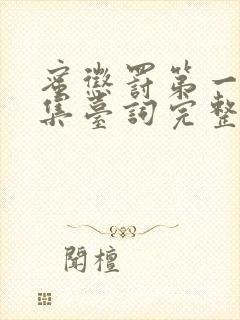 蜜懲罰第一
集臺詞完整
闻檀